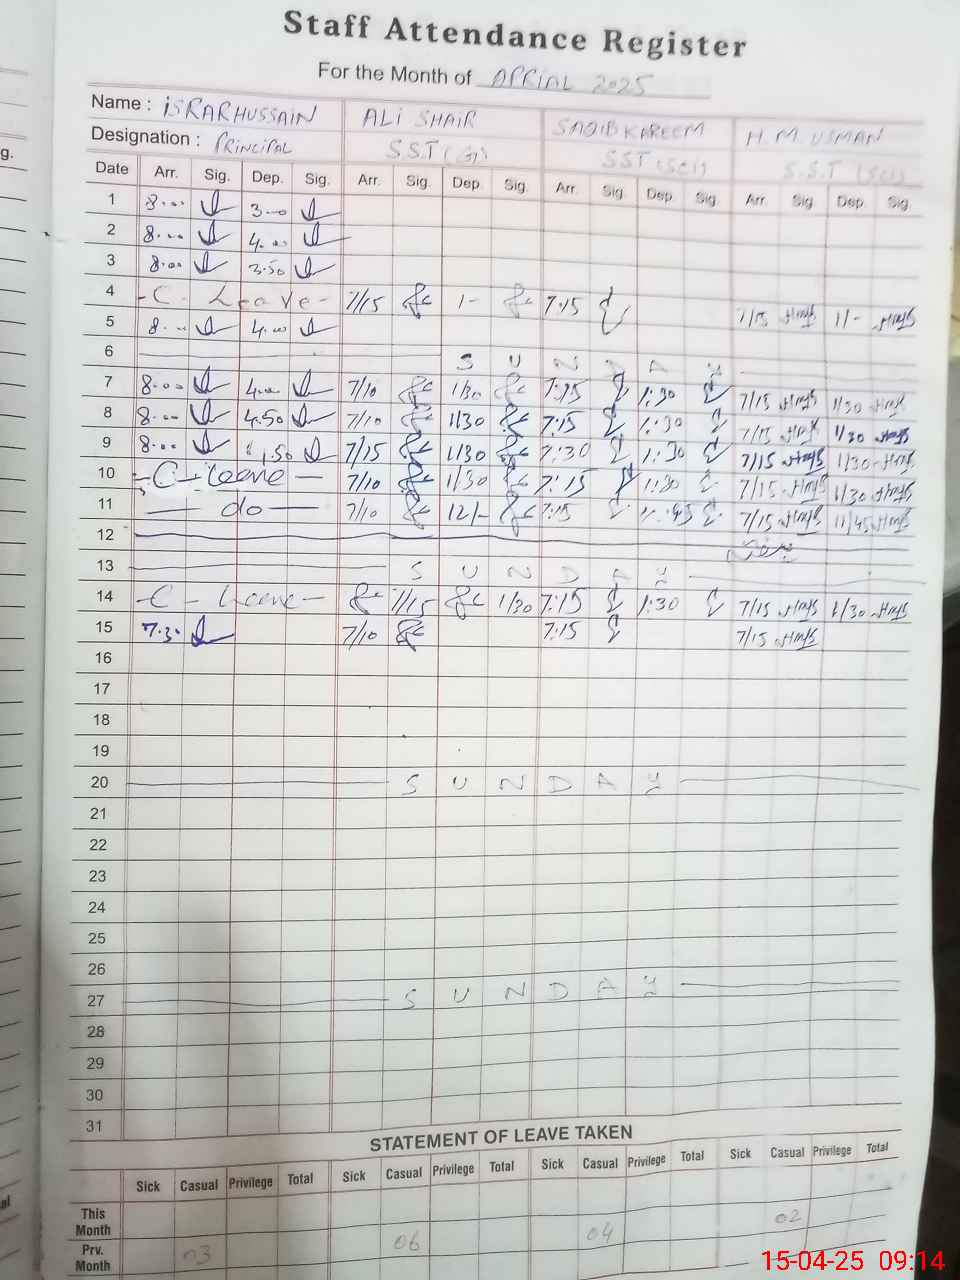 Staff Attendance Register
For the Month of APRIAL 2025
Name : ISRARHUSSAIN ALI SHAIR SAQIB KAREEM H.M. USMAN
Designation : PRINCIPAL S.S.T (G) SST (SCI) S.S.T (SCI)
Date Arr. Sig. Dep. Sig. Arr. Sig. Dep. Sig. Arr. Sig. Dep. Sig. Arr. Sig. Dep. Sig.
1 8.00 3.00
2 8.00 4.00
3 8.00 3.50
4 - C. Leave - 7/15 1- 7:15 7/15 11/-
5 8.00 4.00
6 SUNDAY
7 8.00 4.00 7/10 1/30 7:15 1:30 7/15 1/30
8 8.00 4.50 7/10 1/30 7:15 1:30 7/15 1/30
9 8.00 7/15 1/30 7:30 1:30 7/15 1/30
10 - C - Leave - 7/10 1/30 7:15 1:30 7/15 1/30
11 — do — 7/10 12/- 7:15 7/15 11/45
12
13 SUNDAY
14 - C - Leave - 7/15 1/30 7:15 1:30 7/15 1/30
15 7.30 7/10 7:15 7/15
16
17
18
19
20 SUNDAY
21
22
23
24
25
26
27 SUNDAY
28
29
30
31
STATEMENT OF LEAVE TAKEN
Sick Casual Privilege Total Sick Casual Privilege Total Sick Casual Privilege Total Sick Casual Privilege Total
This Month 02
Prv. Month 03 06 04
15-04-25 09:14